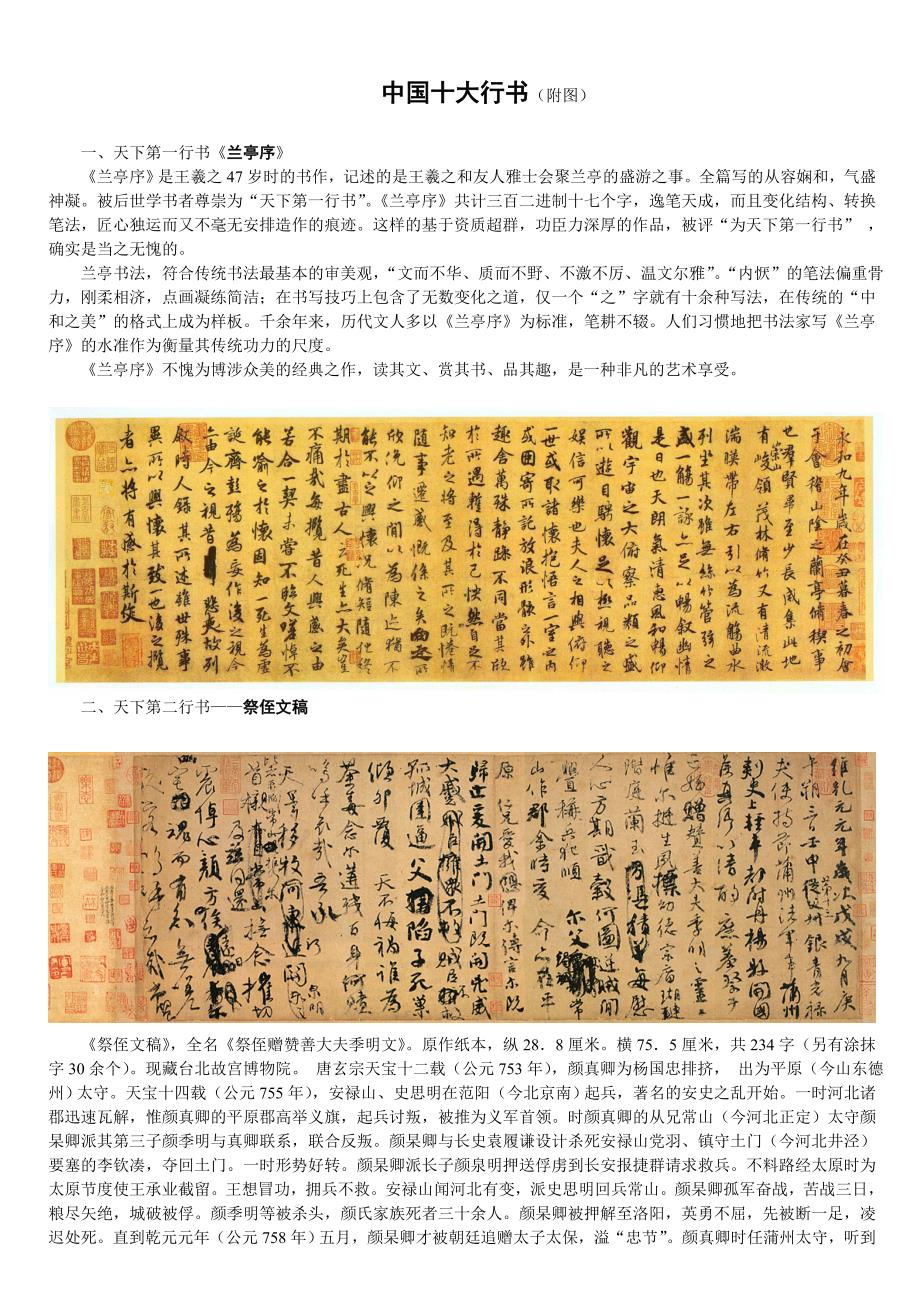 中国十大行书（附图）
一、天下第一行书《兰亭序》
《兰亭序》是王羲之 47 岁时的书作，记述的是王羲之和友人雅士会聚兰亭的盛游之事。全篇写的从容娴和，气盛
神凝。被后世学书者尊崇为“天下第一行书”。《兰亭序》共计三百二进制十七个字，逸笔天成，而且变化结构、转换
笔法，匠心独运而又不毫无安排造作的痕迹。这样的基于资质超群，功臣力深厚的作品，被评“为天下第一行书” ，
确实是当之无愧的。
兰亭书法，符合传统书法最基本的审美观，“文而不华、质而不野、不激不厉、温文尔雅”。“内恹”的笔法偏重骨
力，刚柔相济，点画凝练简洁；在书写技巧上包含了无数变化之道，仅一个“之”字就有十余种写法，在传统的“中
和之美”的格式上成为样板。千余年来，历代文人多以《兰亭序》为标准，笔耕不辍。人们习惯地把书法家写《兰亭
序》的水准作为衡量其传统功力的尺度。
《兰亭序》不愧为博涉众美的经典之作，读其文、赏其书、品其趣，是一种非凡的艺术享受。
永和九年歲在癸丑暮春之初會
于會稽山陰之蘭亭脩稧事
也羣賢畢至少長咸集此地
有崇山峻領茂林脩竹又有清流激
湍暎帶左右引以為流觴曲水
列坐其次雖無絲竹管弦之
盛一觴一詠亦足以暢敘幽情
是日也天朗氣清惠風和暢仰
觀宇宙之大俯察品類之盛
所以遊目騁懷足以極視聽之
娛信可樂也夫人之相與俯仰
一世或取諸懷抱悟言一室之內
或因寄所託放浪形骸之外雖
趣舍萬殊靜躁不同當其欣
於所遇蹔得於己怏然自足不
知老之將至及其所之既惓情
隨事遷感慨係之矣向之所
欣俛仰之閒以為陳迹猶不
能不以之興懷況脩短隨化終
期於盡古人云死生亦大矣豈
不痛哉每攬昔人興感之由
若合一契未嘗不臨文嗟悼不
能喻之於懷固知一死生為虛
誕齊彭殤為妄作後之視今
亦由今之視昔悲夫故列
敘時人錄其所述雖世殊事
異所以興懷其致一也後之攬
者亦將有感於斯文
二、天下第二行书——祭侄文稿
維乾元元年歲次戊戌九月庚
午朔三日壬申從父銀青光祿
夫使持節蒲州諸軍事蒲州
刺史上輕車都尉丹楊縣開國
侯真卿以清酌庶羞祭于
亡姪贈贊善大夫季明之靈曰
惟爾挺生夙標幼德宗廟瑚璉
階庭蘭玉每慰
人心方期戩穀何圖逆賊閒
釁稱兵犯順爾父常
山作郡余時受命亦在平
原仁兄愛我俾爾傳言爾既
歸止爰開土門土門既開兇威
大蹙賊臣不救
孤城圍逼父陷子死巢
傾卵覆天不悔禍誰為
荼毒念爾遘殘百身何贖
嗚呼哀哉吾承
天澤移牧河關
《祭侄文稿》，全名《祭侄赠赞善大夫季明文》。原作纸本，纵 28．8 厘米。横 75．5 厘米，共 234 字（另有涂抹
字 30 余个）。现藏台北故宫博物院。 唐玄宗天宝十二载（公元 753 年），颜真卿为杨国忠排挤， 出为平原（今山东德
州）太守。天宝十四载（公元 755 年），安禄山、史思明在范阳（今北京南）起兵，著名的安史之乱开始。一时河北诸
郡迅速瓦解，惟颜真卿的平原郡高举义旗，起兵讨叛，被推为义军首领。时颜真卿的从兄常山（今河北正定）太守颜
杲卿派其第三子颜季明与真卿联系，联合反叛。颜杲卿与长史袁履谦设计杀死安禄山党羽、镇守土门（今河北井泾）
要塞的李钦凑，夺回土门。一时形势好转。颜杲卿派长子颜泉明押送俘虏到长安报捷群请求救兵。不料路经太原时为
太原节度使王承业截留。王想冒功，拥兵不救。安禄山闻河北有变，派史思明回兵常山。颜杲卿孤军奋战，苦战三日，
粮尽矢绝，城破被俘。颜季明等被杀头，颜氏家族死者三十余人。颜杲卿被押解至洛阳，英勇不屈，先被断一足，凌
迟处死。直到乾元元年（公元 758 年）五月，颜杲卿才被朝廷追赠太子太保，溢“忠节”。颜真卿时任蒲州太守，听到